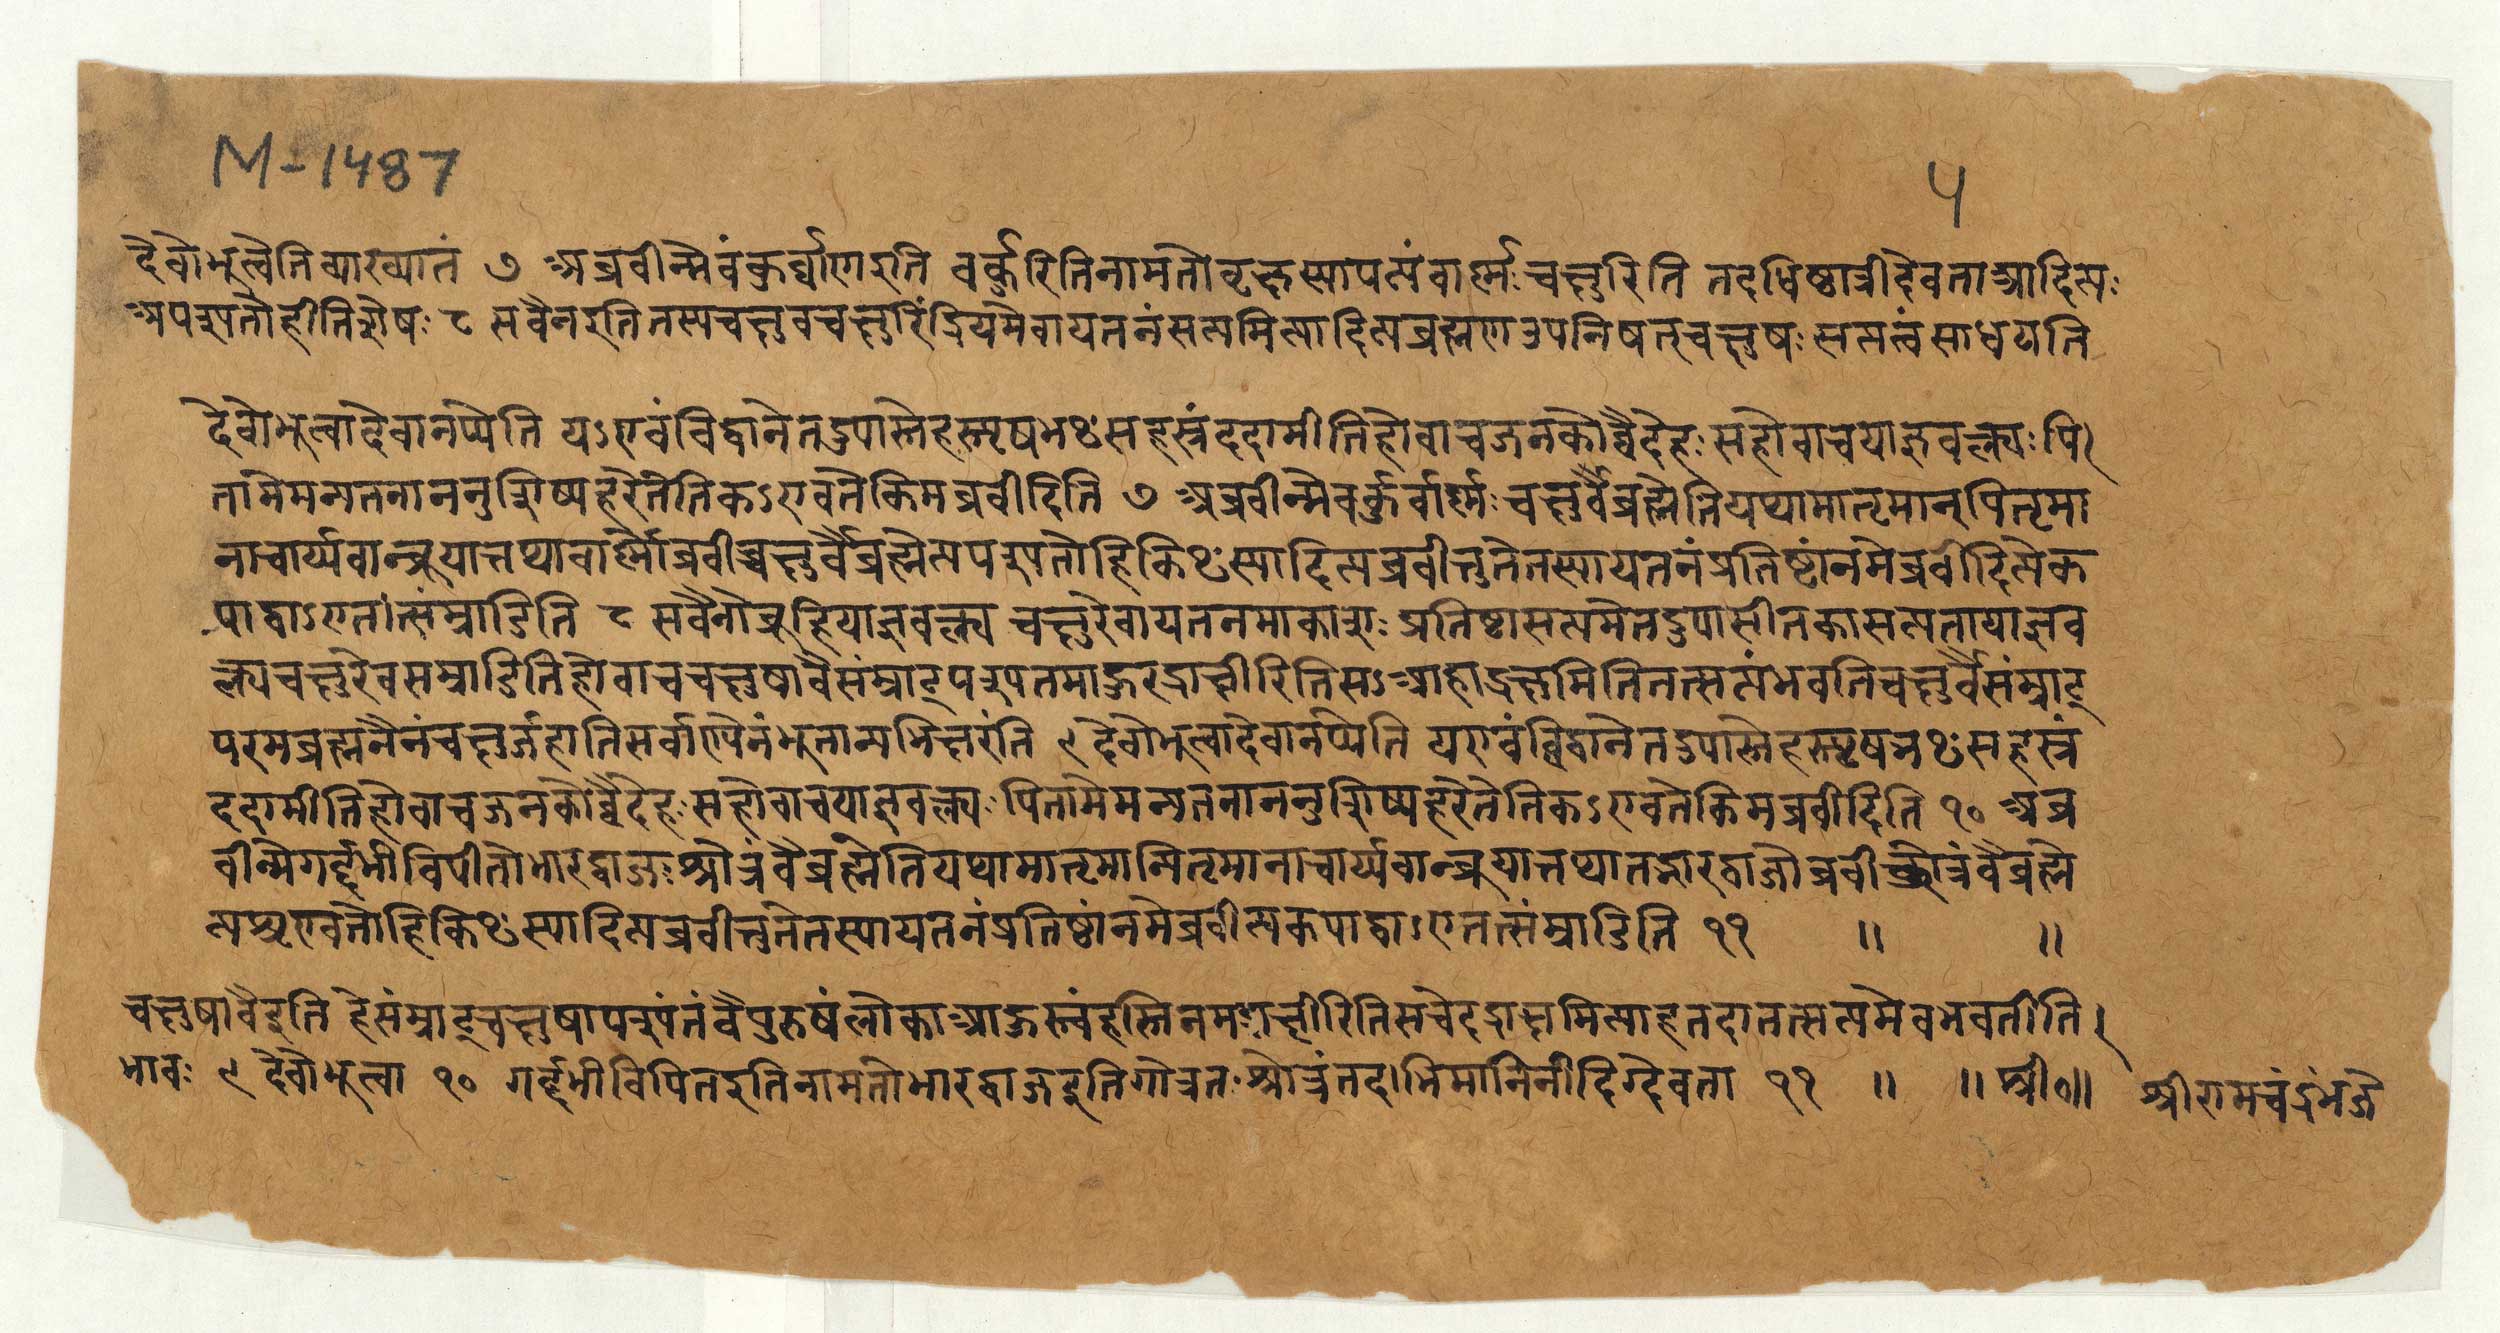 M-1487
५
देवोभुत्वेतिव्याख्यातं ७ अब्रवीन्मेवंकुर्वार्ष्णइति वर्कुरितिनामतोवृह्नस्यापत्यंवार्ष्णः चक्षुरिति तदधिष्ठात्रीदेवताआदित्यः
अपश्यतोहीतिशेषः ८ सवैनइतितस्यचक्षुवचक्षुरिंद्रियमेवायतनंसत्यमित्यादित्यब्रह्मणउपनिषत्चक्षुषः सत्यत्वंसाधयति
देवोभुत्वादेवानप्येति यऽएवंविद्वानेतदुपास्तेहस्तृषभꣳसहस्रंददामीतिहोवाचजनकोव्वैदेहः सहोवाचयाज्ञवल्क्यः पि
तामेमन्यतनाननुशिष्यहरेतेतिकऽएवतेकिमब्रवीदिति ७ अब्रवीन्मेवर्कुर्वार्ष्णः चक्षुर्वैब्रह्मेतियथामातृमान्पितृमा
नाचार्य्यवान्ब्रूयात्तथावार्ष्णोब्रवीच्चक्षुर्वैब्रह्मेत्यपश्यतोहिकिꣳस्यादित्यब्रवीत्तुतेतस्यायतनंप्रतिष्टांनमेब्रवीदित्येक
पाद्वाऽएतत्संम्राडिति ८ सवैनोब्रूहियाज्ञवल्क्य चक्षुरेवायतनमाकाशः प्रतिष्टासत्यमेतदुपासीतकासत्यतायाज्ञव
ल्क्यचक्षुरेवसम्राडितिहोवाचचक्षुषावैसंम्राट्पश्यतमाहुरद्राक्षीरितिसऽआहाद्रक्षमितितत्सत्यंभवतिचक्षुर्वैसंम्राट्
परमब्रह्मनैनंचक्षुर्जहातिसर्वाण्येनंभुतान्यभिक्षरंति ९ देवोभुत्वादेवानप्येति यएवंव्विद्वानेतदुपास्तेहस्तृषभꣳसहस्रं
ददामीतिहोवाचजनकोव्वैदेहः सहोवाचयाज्ञवल्क्यः पितामेमन्यतनाननुशिष्यहरेतेतिकऽएवतेकिमब्रवीदिति १० अब्र
वीन्मेगर्द्दभीविपीतोभारद्वाजः श्रोत्रंवैब्रह्मेतियथामातृमान्पितृमानाचार्य्यवान्ब्रुयात्तथातद्भारद्वाजोब्रवीच्छ्रोत्रंवैब्रह्मे
त्यशृण्वतोहिकिꣳस्यादित्यब्रवीत्तुतेतस्यायतनंप्रतिष्ठांनमेब्रवीत्येकपाद्वाऽएतत्संम्राडिति ११ ॥ ॥
चक्षुषावैइति हेसंम्राट्चक्षुषापश्यंतंवैपुरुषंलोकाआहुस्त्वंहस्तिनमद्राक्षीरितिसचेदद्राक्षमित्याहतदातत्सत्यमेवभवतीति
भावः ९ देवोभुत्वा १० गर्द्दभीविपितइतिनामतोभारद्वाजइतिगोत्रतः श्रोत्रंतदाभिमानिनीदिग्देवता ११ ॥ ॥ श्री०॥ श्रीरामचंद्रंभजे